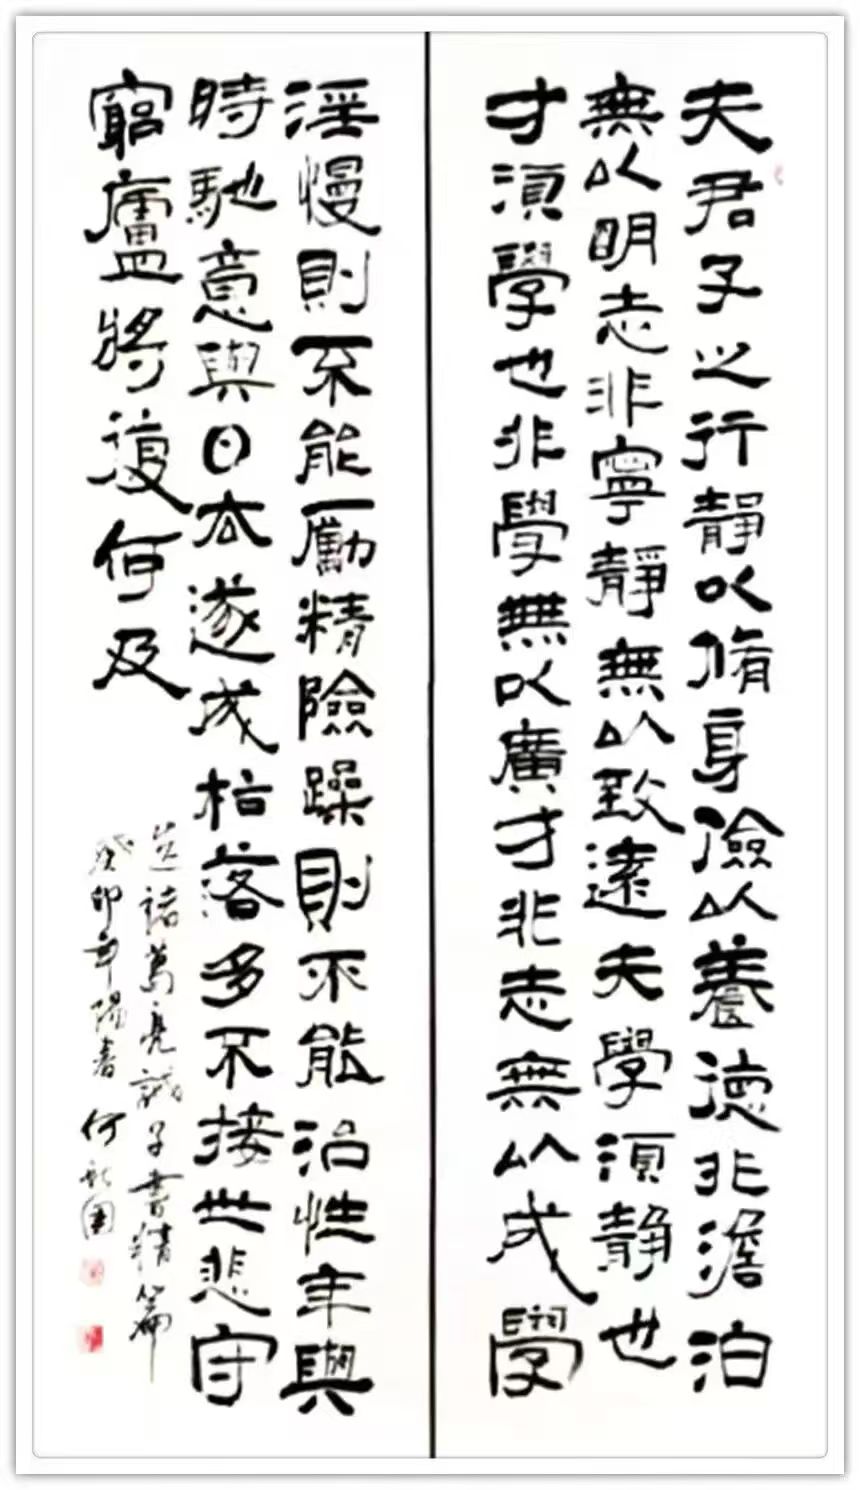 夫君子之行靜以脩身儉以養德非澹泊
無以明志非寧靜無以致遠夫學須静也
才須學也非學無以廣才非志無以成學
淫慢則不能勵精險躁則不能治性年與
時馳意與日去遂成枯落多不接世悲守
窮廬將復何及
諸葛亮誡子書精篇
癸卯年陽春何